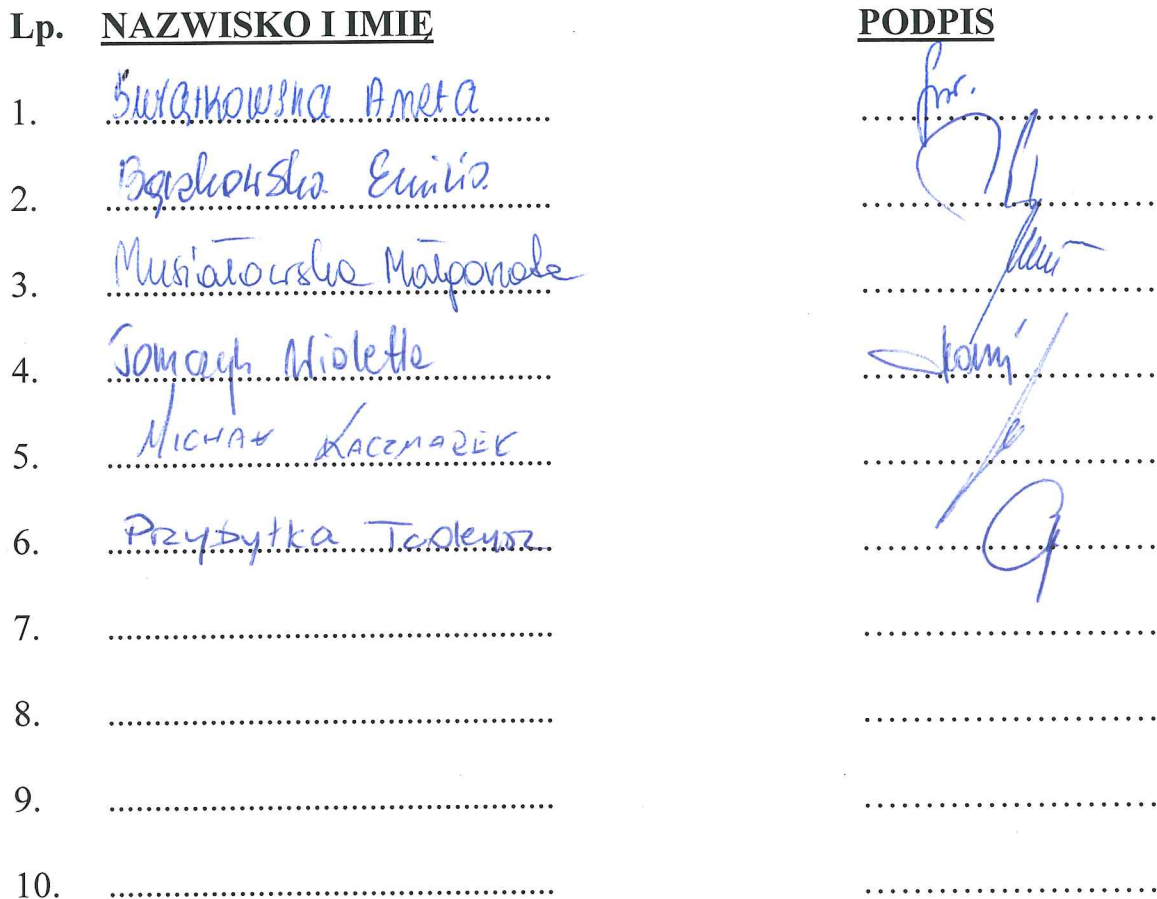 Lp. NAZWISKO I IMIĘ PODPIS
1. Świątkowska Aneta
2. Bączkowska Emilia
3. Musiałowska Małgorzata
4. Tomczyk Wioletta
5. MICHAŁ KACZMAREK
6. Przybyłka Tadeusz
7.
8.
9.
10.